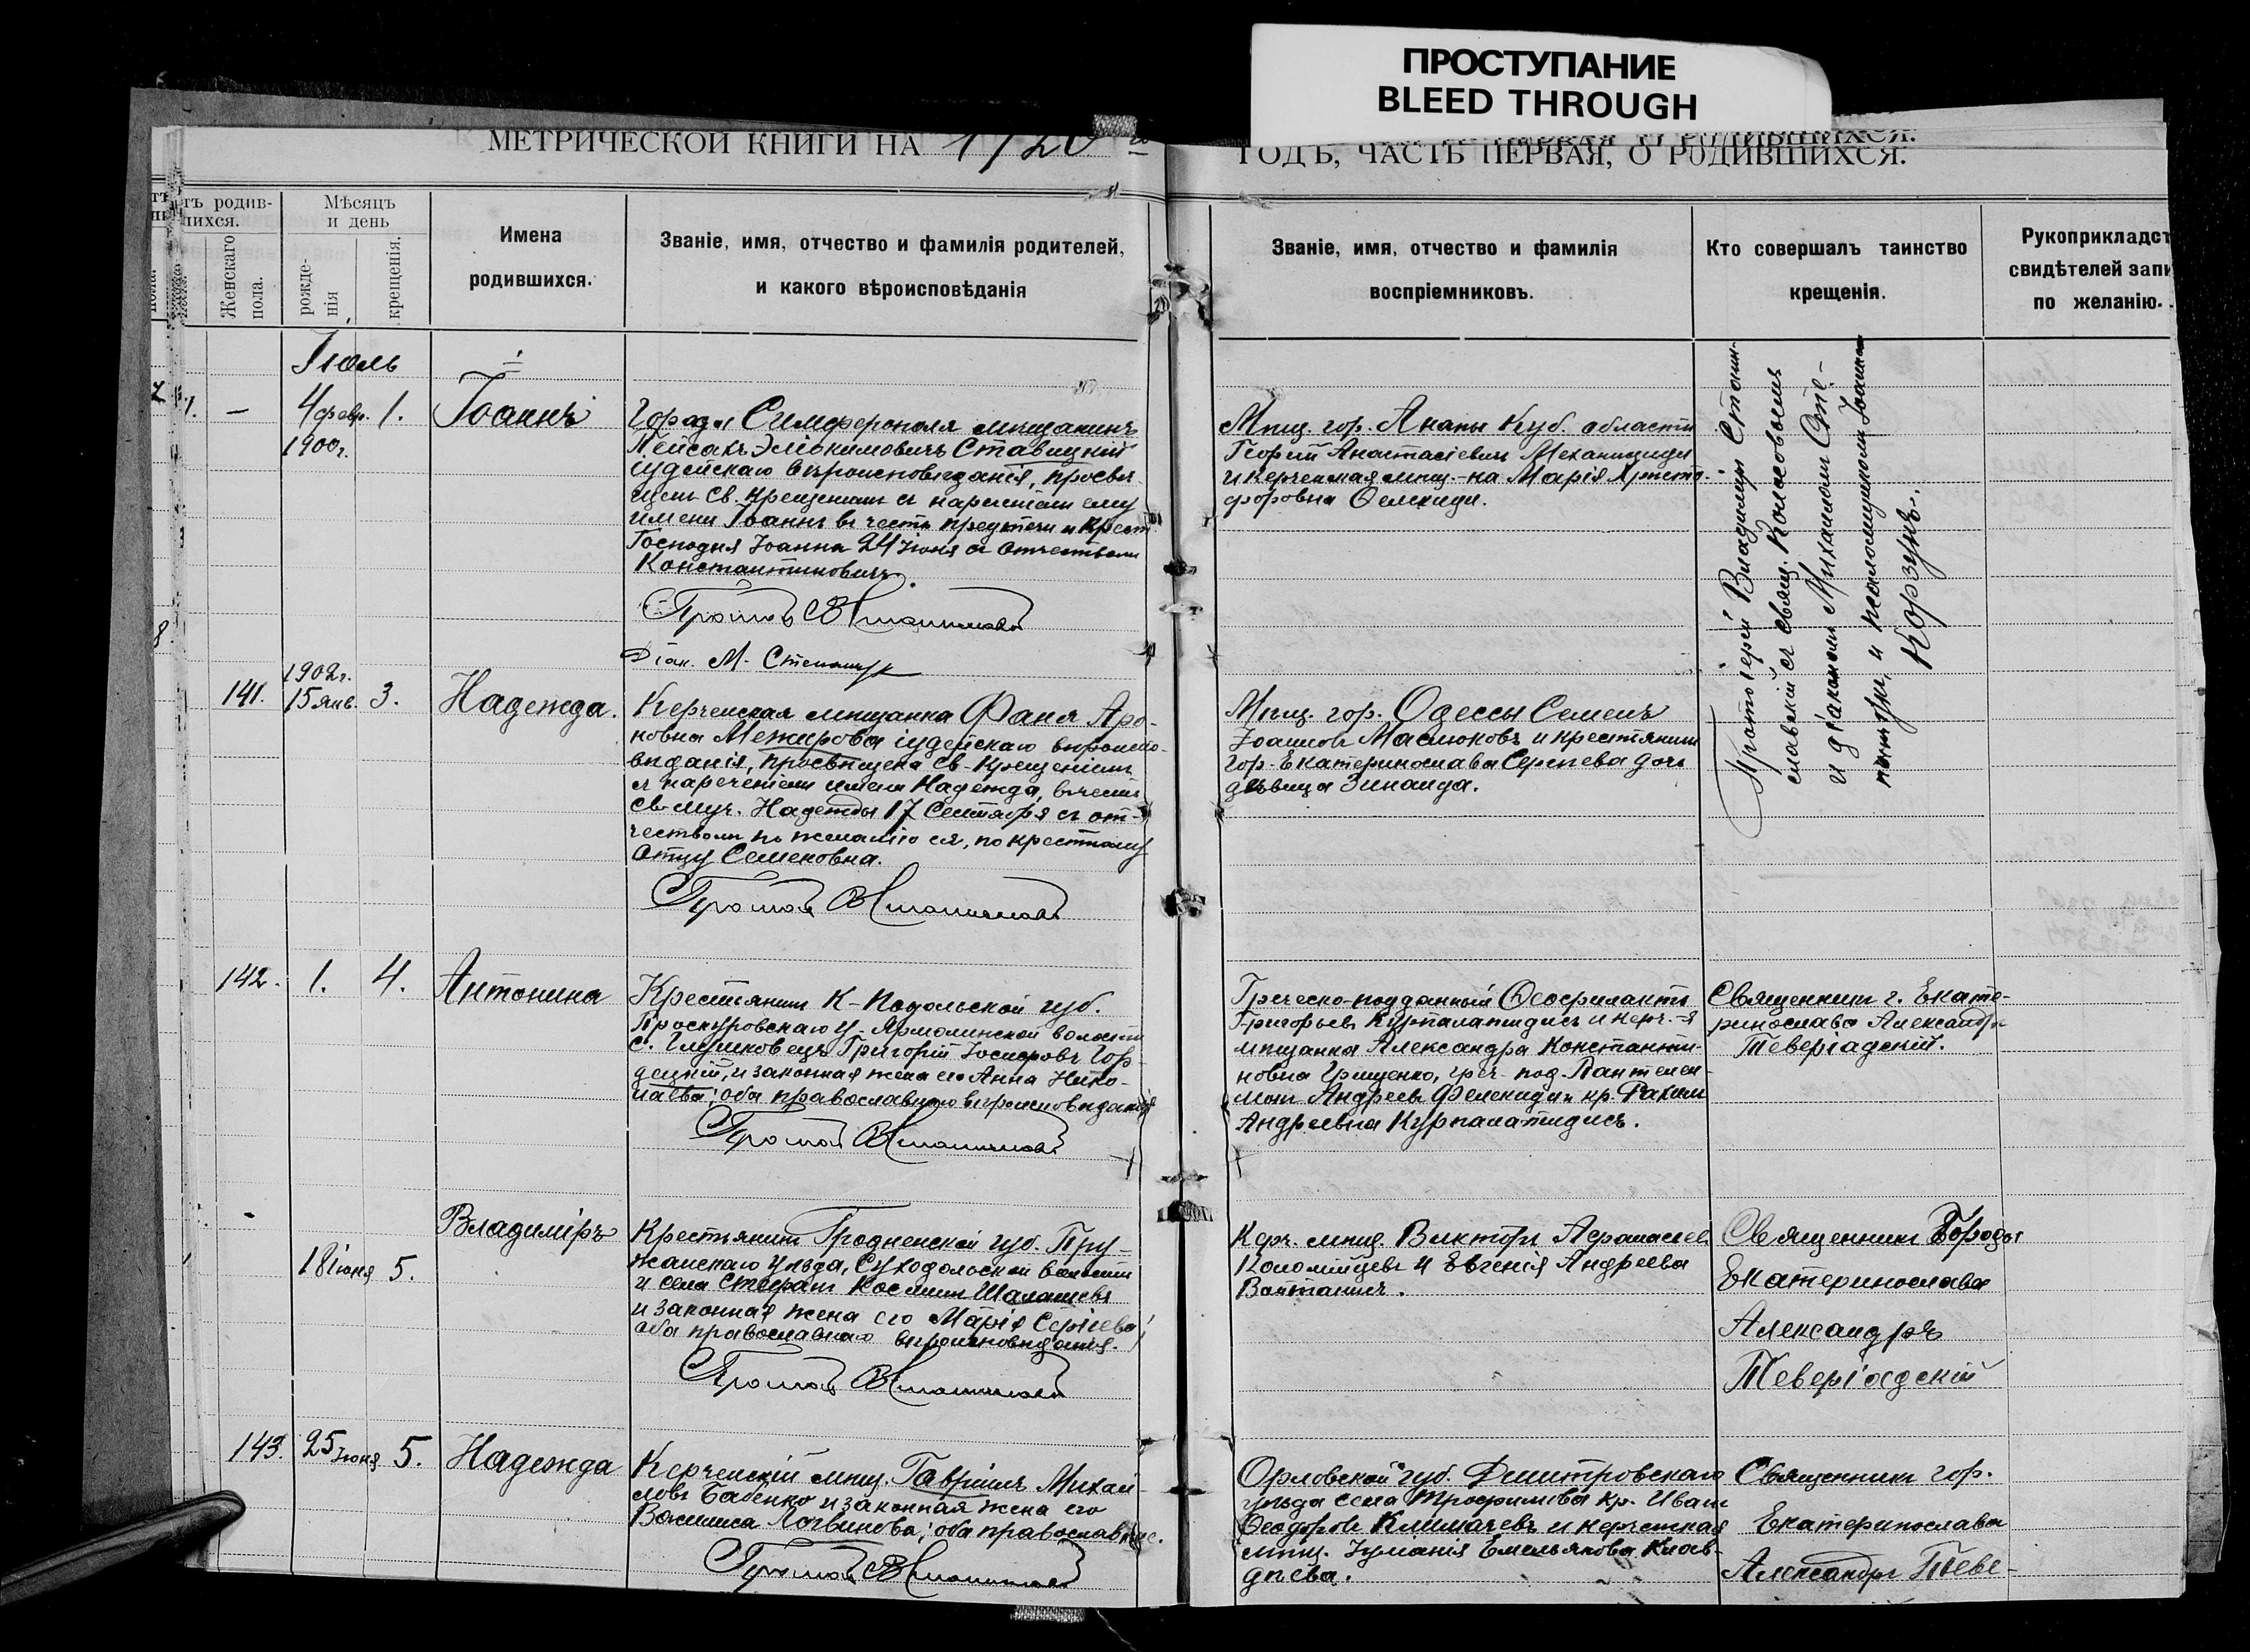 ПРОСТУПАНИЕ
BLEED THROUGH
МЕТРИЧЕСКОЙ КНИГИ НА 1920 го
ГОДЪ, ЧАСТЬ ПЕРВАЯ, О РОДИВШИХСЯ.
тъ родив-
шихся.
Женскаго
пола.
Мѣсяцъ
и день
рожде-
нія
крещенія.
Имена
родившихся.
Званіе, имя, отчество и фамилія родителей,
и какого вѣроисповѣданія
Званіе, имя, отчество и фамилія
воспріемниковъ.
Кто совершалъ таинство
крещенія.
Рукоприкладст
свидѣтелей запи
по желанію.
Іюль
— 4 февр. 1.
1900 г.
Іоаннъ
Города Симферополя мѣщанинъ
Пейсахъ Эліокимовичъ Ставицкій
іудейскаго вѣроисповѣданія, просвѣ
щенъ св. крещеніемъ съ нареченіемъ ему
имени Іоаннъ въ честь предтечи и Крест.
Господня Іоанна 24 Іюня съ отчествомъ
Константиновичъ.
Діак. М. Степ
Мѣщ. гор. Анапы Куб. области
Георгій Анастасіевичъ Механициди
и керченская мѣщ-на Марія Христо-
форовна
Протоіерей Владиміръ Станი-
славскій съ свящ. Колосовымъ
и діакономъ Михаиломъ Сте-
и псаломщикомъ Іоанномъ
Корзунъ.
141. 1902 г.
15 янв. 3.
Надежда.
Керченская мѣщанка Фаня Аро-
новна Межирова іудейскаго вѣроиспо-
вѣданія, просвѣщена св. крещеніемъ
съ нареченіемъ имени Надежда, въ честь
св. муч. Надежды 17 Сентября съ от-
чествомъ по желанію ея, по крестному
отцу Семеновна.
Мѣщ. гор. Одессы Семенъ
Іоанновъ Маслюковъ и крестьянина
гор. Екатеринослава Сергѣева дочь
дѣвица Зинаида.
142. 1. 4.
Антонина
Крестьянинъ К-Подольской губ.
Проскуровскаго у. Ярмолинской волости
с. Глушковецъ Григорій Іосифовъ Гор-
децкій, и законная жена его Анна Нико-
лаева; оба православнаго вѣроисповѣданія
Греческо-подданный Ѳеофилактъ
Григорьевъ Курпалатидисъ и керч.-я
мѣщанка Александра Константи-
новна Грищенко, греч. под. Пантелеи-
монъ Андреевъ и гр.
Андреевна Курпалатидисъ.
Священникъ г. Екате-
ринослава Александръ
Тевериадскій.
Владиміръ
18 іюня 5.
Крестьянинъ Гродненской губ. Пру-
жанскаго уѣзда, Суходольской волости
и села Стефанъ Косминъ
и законная жена его Марія Сергіева
оба православнаго вѣроисповѣданія.
Керч. мѣщ. Викторъ Афанасіев
Коломийцевъ и Евгенія Андреева
Войтанисъ.
Священникъ Города
Екатеринослава
Александръ
Тевериадскій
143. 25 Іюня 5.
Надежда
Керченскій мѣщ. Гавріилъ Михаи-
ловъ Бабенко и законная жена его
Василиса Логвинова; оба православные.
Орловской губ. Дмитровскаго
уѣзда села Трофимова кр. Иванъ
Ѳеодоровъ Климачевъ и керченская
мѣщ. Іуліанія Емельянова Клав-
діева.
Священникъ гор.
Екатеринослава
Александръ Теве-